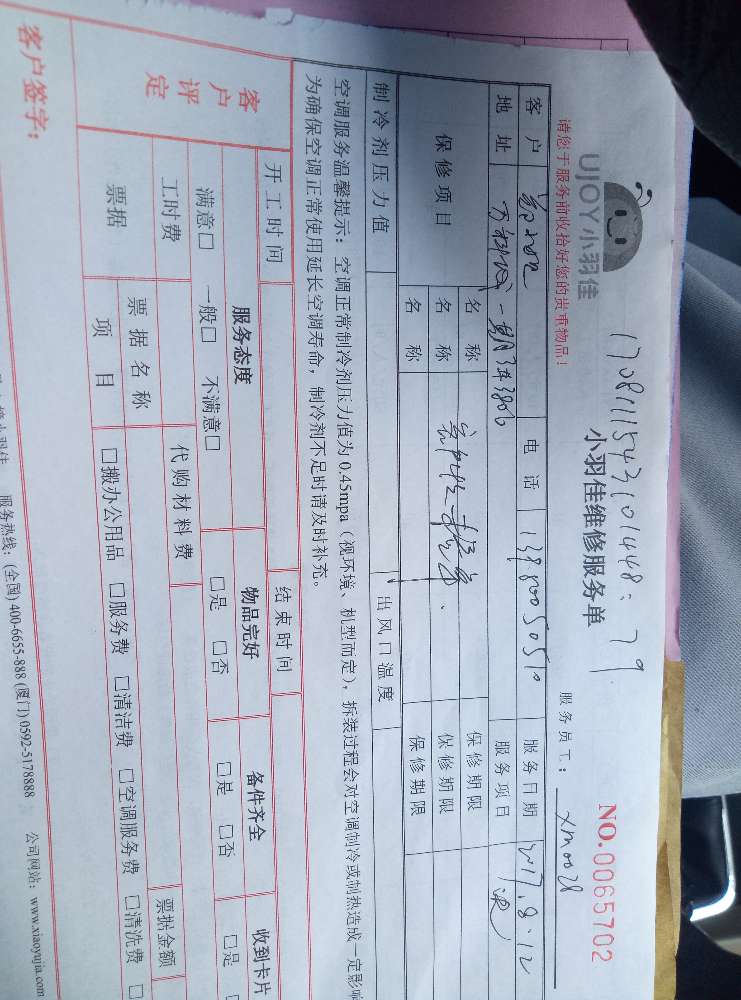 UJOY小羽佳
请您于服务前收拾好您的贵重物品!
小羽佳维修服务单
NO.0065702
服务员工: xm0028
客户
电话 13980050510
服务日期 2017.8.12
地址
服务项目
保修项目
名称
保修期限
名称
保修期限
名称
保修期限
制冷剂压力值
出风口温度
空调服务温馨提示: 空调正常制冷剂压力值为0.45mpa(视环境、机型而定),拆装过程会对空调制冷或制热造成一定影响
为确保空调正常使用延长空调寿命,制冷剂不足时请及时补充。
开工时间
结束时间
客户评定
服务态度
物品完好
备件齐全
收到卡片
满意□ 一般□ 不满意□
□是 □否
□是 □否
□是
工时费
代购材料费
票据金额
票据
票据名称
项目
□搬办公用品 □服务费 □清洁费 □空调服务费 □清洗费
客户签字:
服务热线: (全国) 400-6655-888 (厦门) 0592-5178888 公司网站: www.xiaoyujia.com